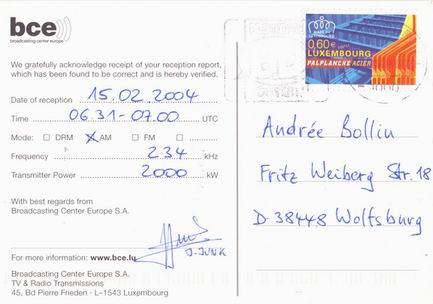 bce
broadcasting center europe
We gratefully acknowledge receipt of your reception report,
which has been found to be correct and is hereby verified.
Date of reception 15.02.2004
Time 06.31-07.00 UTC
Mode: DRM X AM FM
Frequency 234 kHz
Transmitter Power 2000 kW
With best regards from
Broadcasting Center Europe S.A.
J. JUNK
For more information: www.bce.lu
Broadcasting Center Europe S.A.
TV & Radio Transmissions
45, Bd Pierre Frieden - L-1543 Luxembourg
0,60€
LUXEMBOURG
PALPLANCHE ACIER
Andrée Bollin
Fritz Weiberg Str. 18
D-38448 Wolfsburg